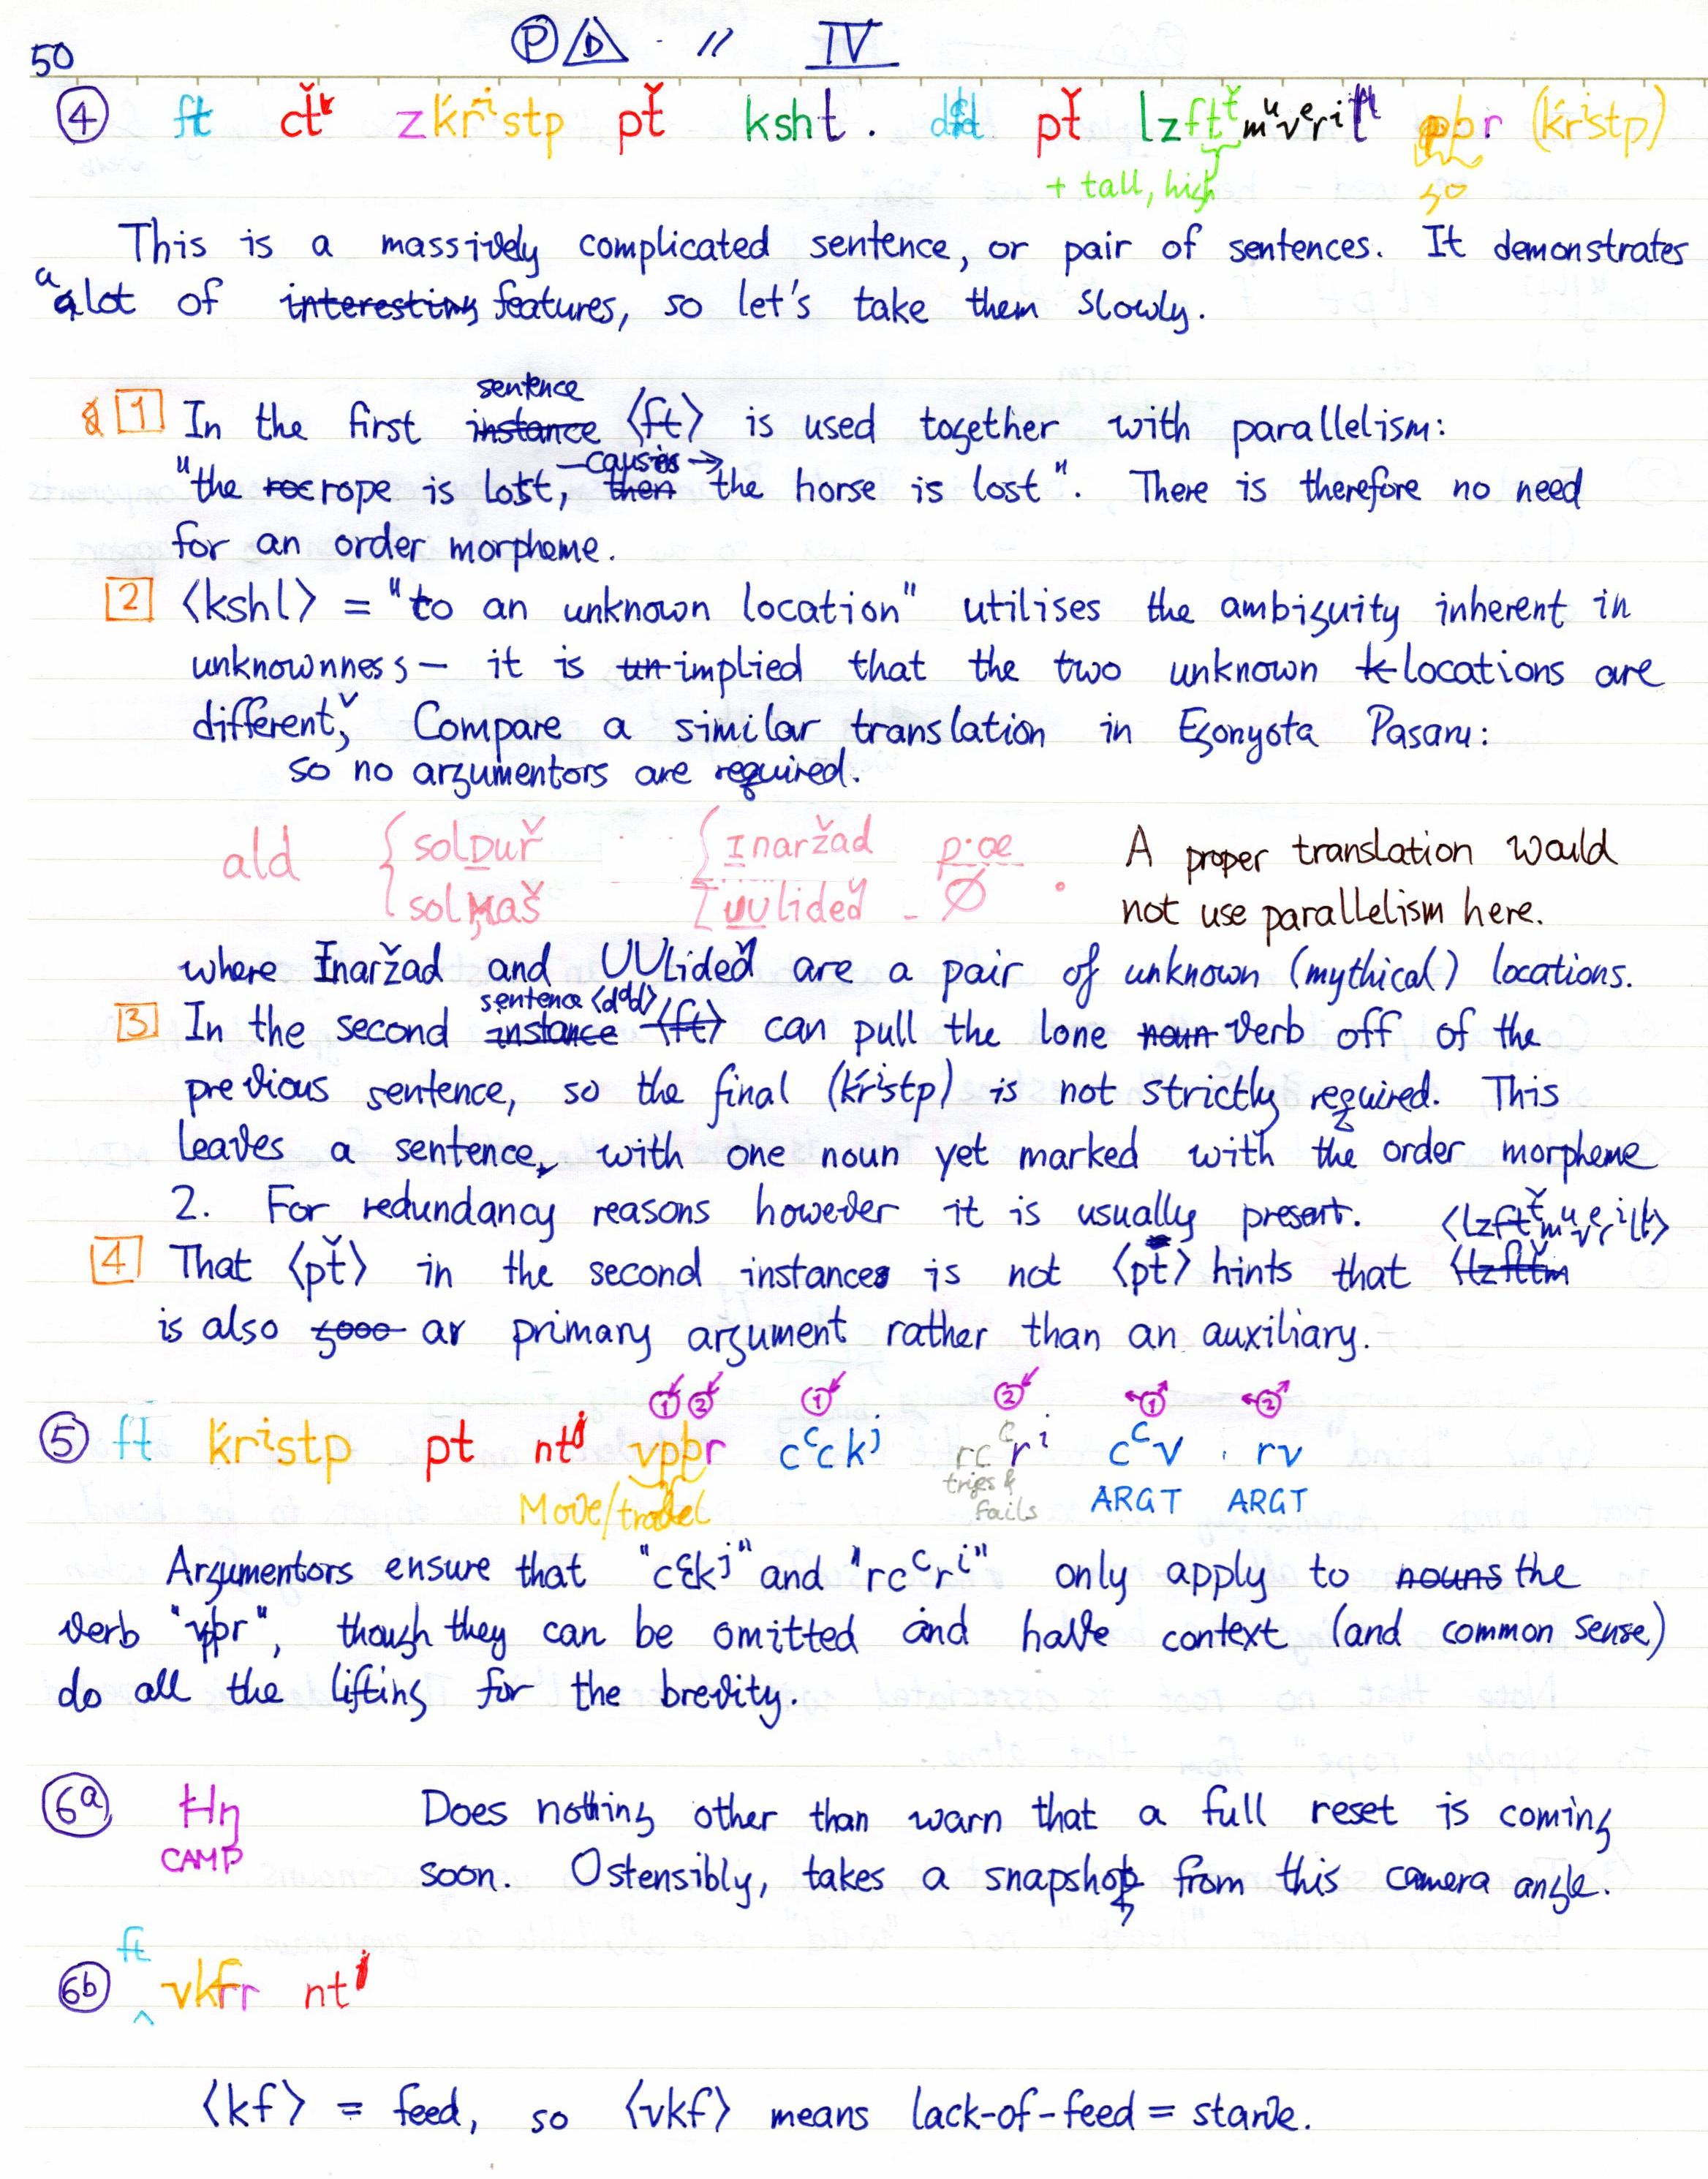 50 P D · // IV
4 ft ct̆ zkŕⁱstp pt̆ kshl . dᵈd pt̆ lzftᵗ̆mᵘvᵉrⁱlt pbr (kŕⁱstp)
+ tall, high go
This is a massively complicated sentence, or pair of sentences. It demonstrates
a lot of interesting features, so let's take them slowly.
sentence
1 In the first instance ⟨ft⟩ is used together with parallelism:
—causes→
"the rope is lost, then the horse is lost". There is therefore no need
for an order morpheme.
2 ⟨kshl⟩ = "to an unknown location" utilises the ambiguity inherent in
unknownness – it is un implied that the two unknown k locations are
different, Compare a similar translation in Egonyota Pasaru:
so no argumentors are required.
ald { solDuř { Inaržad p·oe
solMaš UUlideď - Ø . 
A proper translation would
not use parallelism here.
where Inaržad and UUlideď are a pair of unknown (mythical) locations.
sentence ⟨dᵈd⟩
3 In the second instance ⟨ft⟩ can pull the lone noun verb off of the
previous sentence, so the final (kŕⁱstp) is not strictly required. This
leaves a sentence, with one noun yet marked with the order morpheme
2. For redundancy reasons however it is usually present. ⟨lzftᵗ̆mᵘvᵉrⁱlt⟩
4 That ⟨pt̆⟩ in the second instance is not ⟨pt⟩ hints that ⟨lzftt̆m
is also gooo a primary argument rather than an auxiliary.
1 2 1 2 1 2
5 ft kŕⁱstp pt ntʲ vpbr cᶜckʲ rcᶜrⁱ cᶜv . rv
Move/travel tries & fails ARGT ARGT
Argumentors ensure that "cᶜckʲ" and "rcᶜrⁱ" only apply to nouns the
verb "vpbr", though they can be omitted and have context (and common sense)
do all the lifting for the brevity.
6a Hŋ Does nothing other than warn that a full reset is coming
CAMP soon. Ostensibly, takes a snapshot from this camera angle.
ft
6b vkfr ntʲ
⟨kf⟩ = feed, so ⟨vkf⟩ means lack-of-feed = starve.